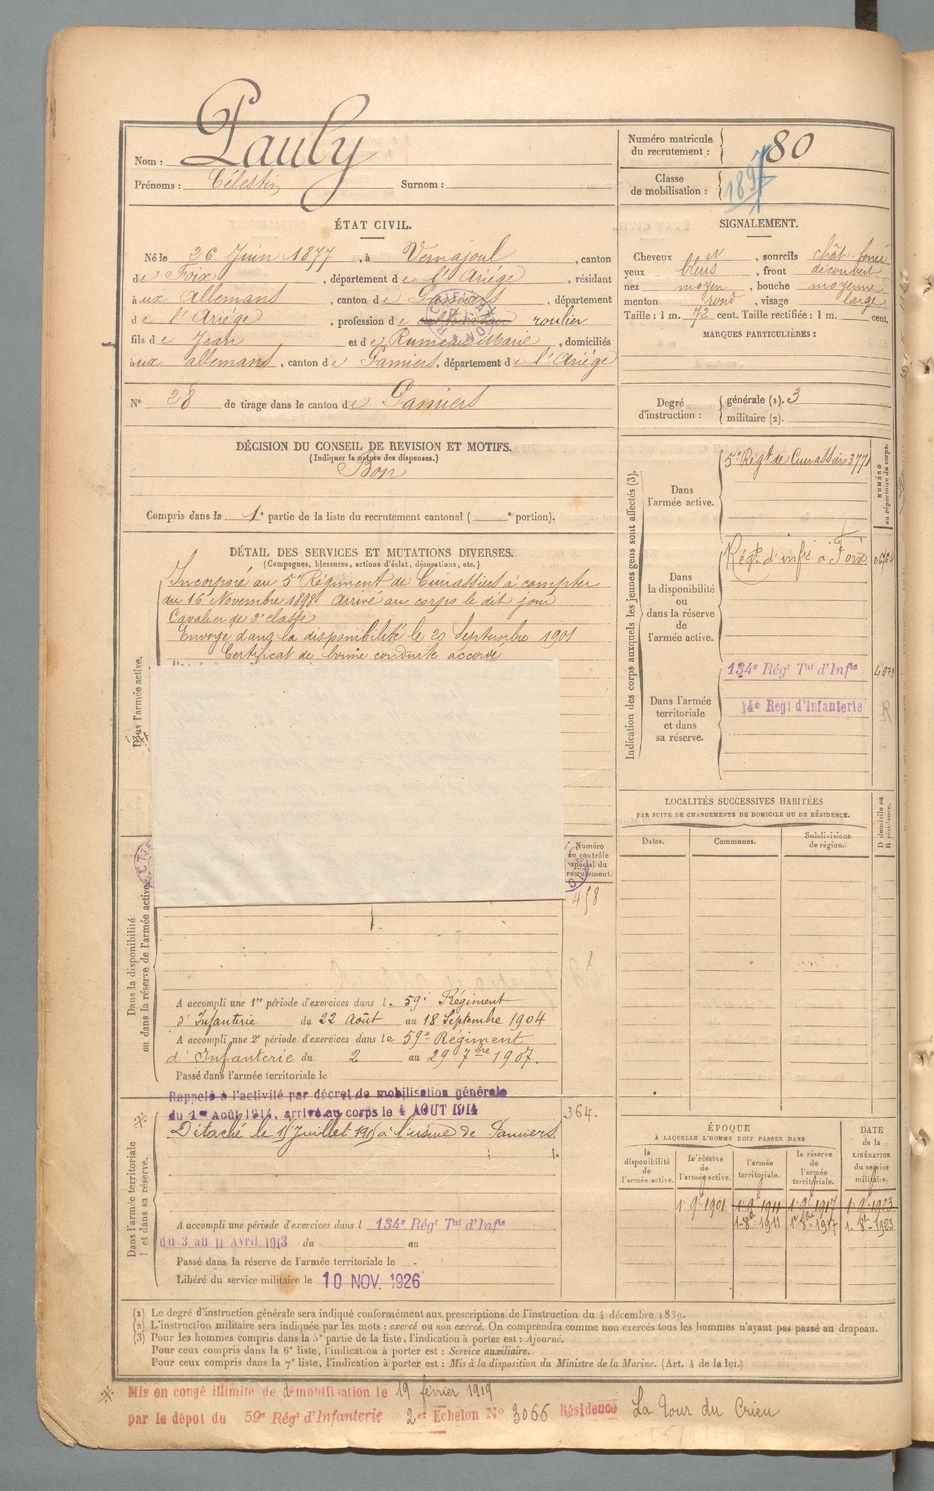 Nom : Pauly
Prénoms : Célestin Surnom :
Numéro matricule du recrutement : 780
Classe de mobilisation : 1897
ÉTAT CIVIL.
Né le 26 Juin 1877, à Vernajoul, canton
de Foix, département de l'Ariége, résidant
à ux Allemans, canton de Pamiers, département
de l'Ariége, profession de cultivateur roulier
fils de Jean et de Rumeau Marie, domiciliés
à ux allemans, canton de Pamiers, département de l'Ariége
N° 28 de tirage dans le canton de Pamiers
SIGNALEMENT.
Cheveux et, sourcils chât. foncé
yeux bleus, front découvert
nez moyen, bouche moyenne
menton rond, visage large
Taille : 1 m. 72 cent. Taille rectifiée : 1 m. cent.
MARQUES PARTICULIÈRES :
Degré d'instruction : générale (1). 3
militaire (2).
DÉCISION DU CONSEIL DE REVISION ET MOTIFS.
(Indiquer la nature des dispenses.)
Bon
Compris dans la 1e partie de la liste du recrutement cantonal ( e portion).
DÉTAIL DES SERVICES ET MUTATIONS DIVERSES.
(Campagnes, blessures, actions d'éclat, décorations, etc.)
Dans l'armée active.
Incorporé au 5e Régiment de Cuirassiers à compter
du 16 Novembre 1898 Arrivé au corps le dit jour
Cavalier de 2e classe
Envoyé dans la disponibilité le 20 Septembre 1901
Certificat de bonne conduite accordé
Indication des corps auxquels les jeunes gens sont affectés (3).
NUMÉRO au répertoire du corps.
Dans l'armée active.
5e Régt de Cuirassiers 3771
Dans la disponibilité ou dans la réserve de l'armée active.
Régt d'infie à Foix
Dans l'armée territoriale et dans sa réserve.
134e Régt Tal d'Infie
14e Regt d'Infanterie
R
LOCALITÉS SUCCESSIVES HABITÉES
PAR SUITE DE CHANGEMENTS DE DOMICILE OU DE RÉSIDENCE.
Dates. Communes. Subdivisions de région.
D domicile ou R résidence.
Numéro au contrôle spécial du recrutement.
458
Dans la disponibilité ou dans la réserve de l'armée active.
A accompli une 1re période d'exercices dans l. 59e Régiment
d'Infanterie du 22 Août au 18 Septembre 1904
A accompli une 2e période d'exercices dans le 59e Régiment
d'Infanterie du 2 au 29 7bre 1907.
Passé dans l'armée territoriale le
Dans l'armée territoriale et dans sa réserve.
Rappelé à l'activité par décret de mobilisation générale
du 1er Août 1914, arrivé au corps le 4 AOUT 1914
364.
Détaché le Juillet à l'usine de Pamiers.
A accompli une période d'exercices dans l 134e Régt Tal d'Infie
du 3 au 11 Avril 1913 du au
Passé dans la réserve de l'armée territoriale le
Libéré du service militaire le 10 NOV. 1926
ÉPOQUE
À LAQUELLE L'HOMME DOIT PASSER DANS
la disponibilité de l'armée active.
la réserve de l'armée active.
l'armée territoriale.
la réserve de l'armée territoriale.
DATE de la LIBÉRATION du service militaire.
1. 9bre 1901 1. 9bre 1911 1. 9bre 1917 1. 9bre 1923
1-8bre 1911 1-8bre 1917 1-8bre 1923
(1) Le degré d'instruction générale sera indiqué conformément aux prescriptions de l'instruction du 4 décembre 1889.
(2) L'instruction militaire sera indiquée par les mots : exercé ou non exercé. On comprendra comme non exercés tous les hommes n'ayant pas passé au drapeau.
(3) Pour les hommes compris dans la 5e partie de la liste, l'indication à porter est : Ajourné.
Pour ceux compris dans la 6e liste, l'indication à porter est : Service auxiliaire.
Pour ceux compris dans la 7e liste, l'indication à porter est : Mis à la disposition du Ministre de la Marine. (Art. 4 de la loi.)
Mis en congé illimité de démobilisation le 19 février 1919
par le dépôt du 59e Régt d'Infanterie 2er Echelon N° 3066 Résidence La Tour du Crieu